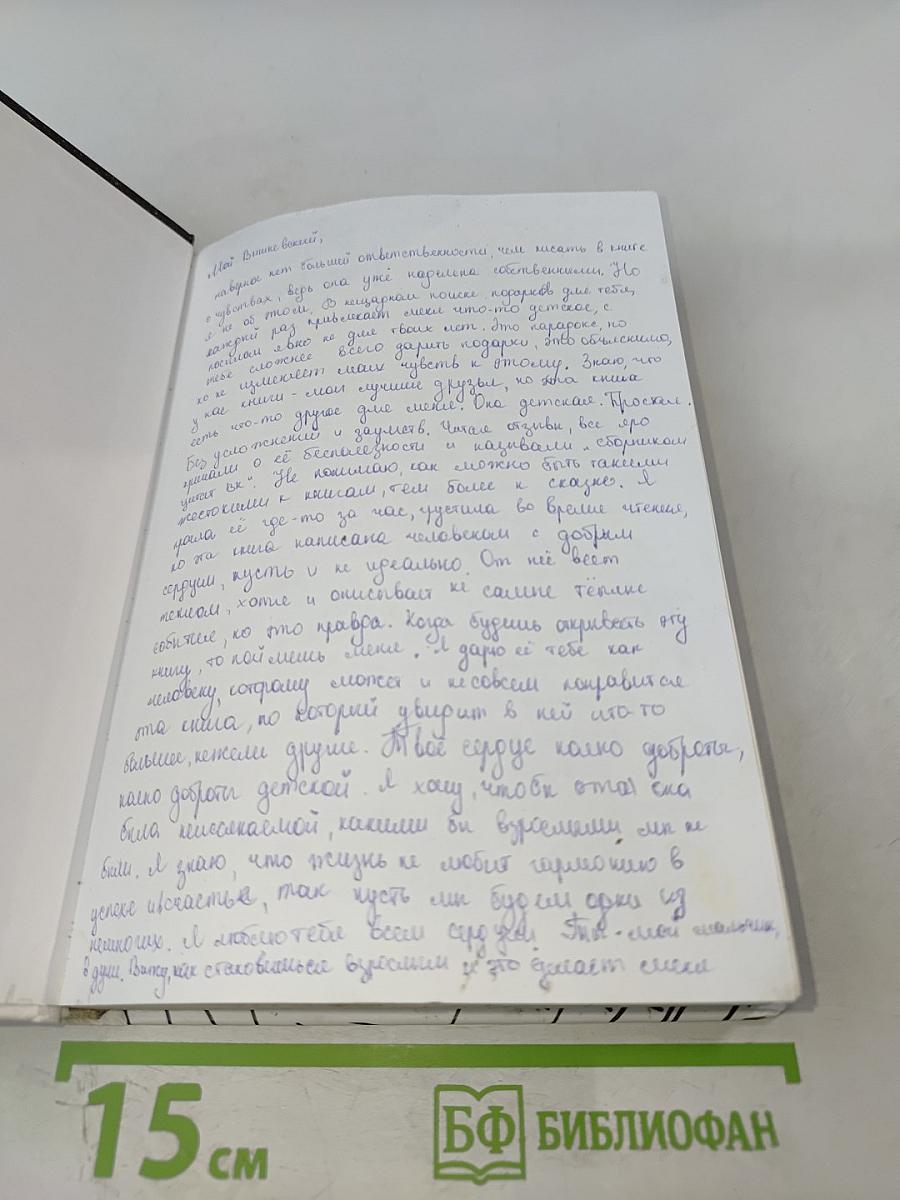 Мой
наверное нет большей ответственности, чем писать в книге
о чувствах, ведь она уже наделена собственными. Но
я не об этом. В нещадном поиске подарков для тебя,
каждый раз привлекает меня что-то детское, с
посылом явно не для твоих лет. Это парадокс, но
тебе сложнее всего дарить подарки, это объяснимо,
но не изменяет моих чувств к этому. Знаю, что
у нас книги - мои лучшие друзья, но эта книга
есть что-то другое для меня. Она детская. Простая.
Без усложнений и заумств. Читала отзывы, все яро
кричали о её бесполезности и называли "сборником
цитат ВК". Не понимаю, как можно быть такими
жестокими к книгам, тем более к сказке. Я
её где-то за час, грустила во время чтения,
но эта книга написана человеком с добрым
сердцем, пусть и не идеально. От неё веет
теплом, хотя и описывает не самые тёплые
события, но это правда. Когда будешь открывать эту
книгу, то поймёшь меня. Я дарю её тебе как
человеку, которому может и не совсем понравится
эта книга, но который увидит в ней что-то
большее, нежели другие. Твоё сердце полно доброты,
полно доброты детской. Я хочу, чтобы она
была неиссякаемой, какими бы взрослыми мы не
были. Я знаю, что жизнь не любит гармонию в
успехе и счастье, так пусть мы будем одни из
немногих. Я люблю тебя всем сердцем. Ты - мой мальчик,
в душе. Вижу, как становишься взрослым и это делает меня
15 см
БФ БИБЛИОФАН